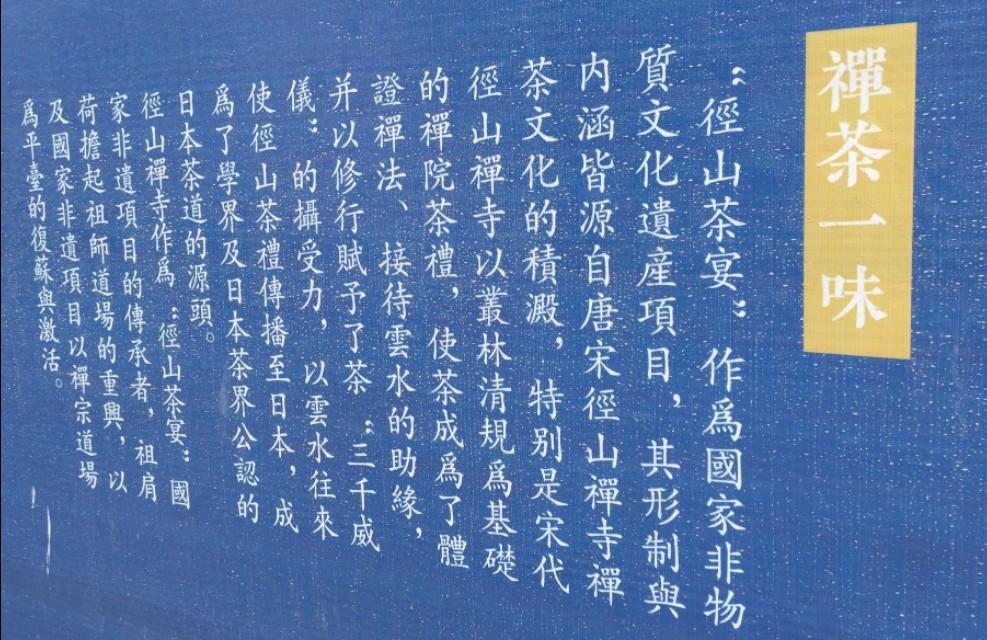 禪茶一味
“徑山茶宴”作爲國家非物
質文化遺産項目，其形制與
内涵皆源自唐宋徑山禪寺禪
茶文化的積澱，特别是宋代
徑山禪寺以叢林清規爲基礎
的禪院茶禮，使茶成爲了體
證禪法、接待雲水的助緣，
并以修行賦予了茶“三千威
儀”的攝受力，以雲水往來
使徑山茶禮傳播至日本，成
爲了學界及日本茶界公認的
日本茶道的源頭。
徑山禪寺作爲“徑山茶宴”國
家非遺項目的傳承者，祖肩
荷擔起祖師道場的重興，以
及國家非遺項目以禪宗道場
爲平臺的復蘇與激活。